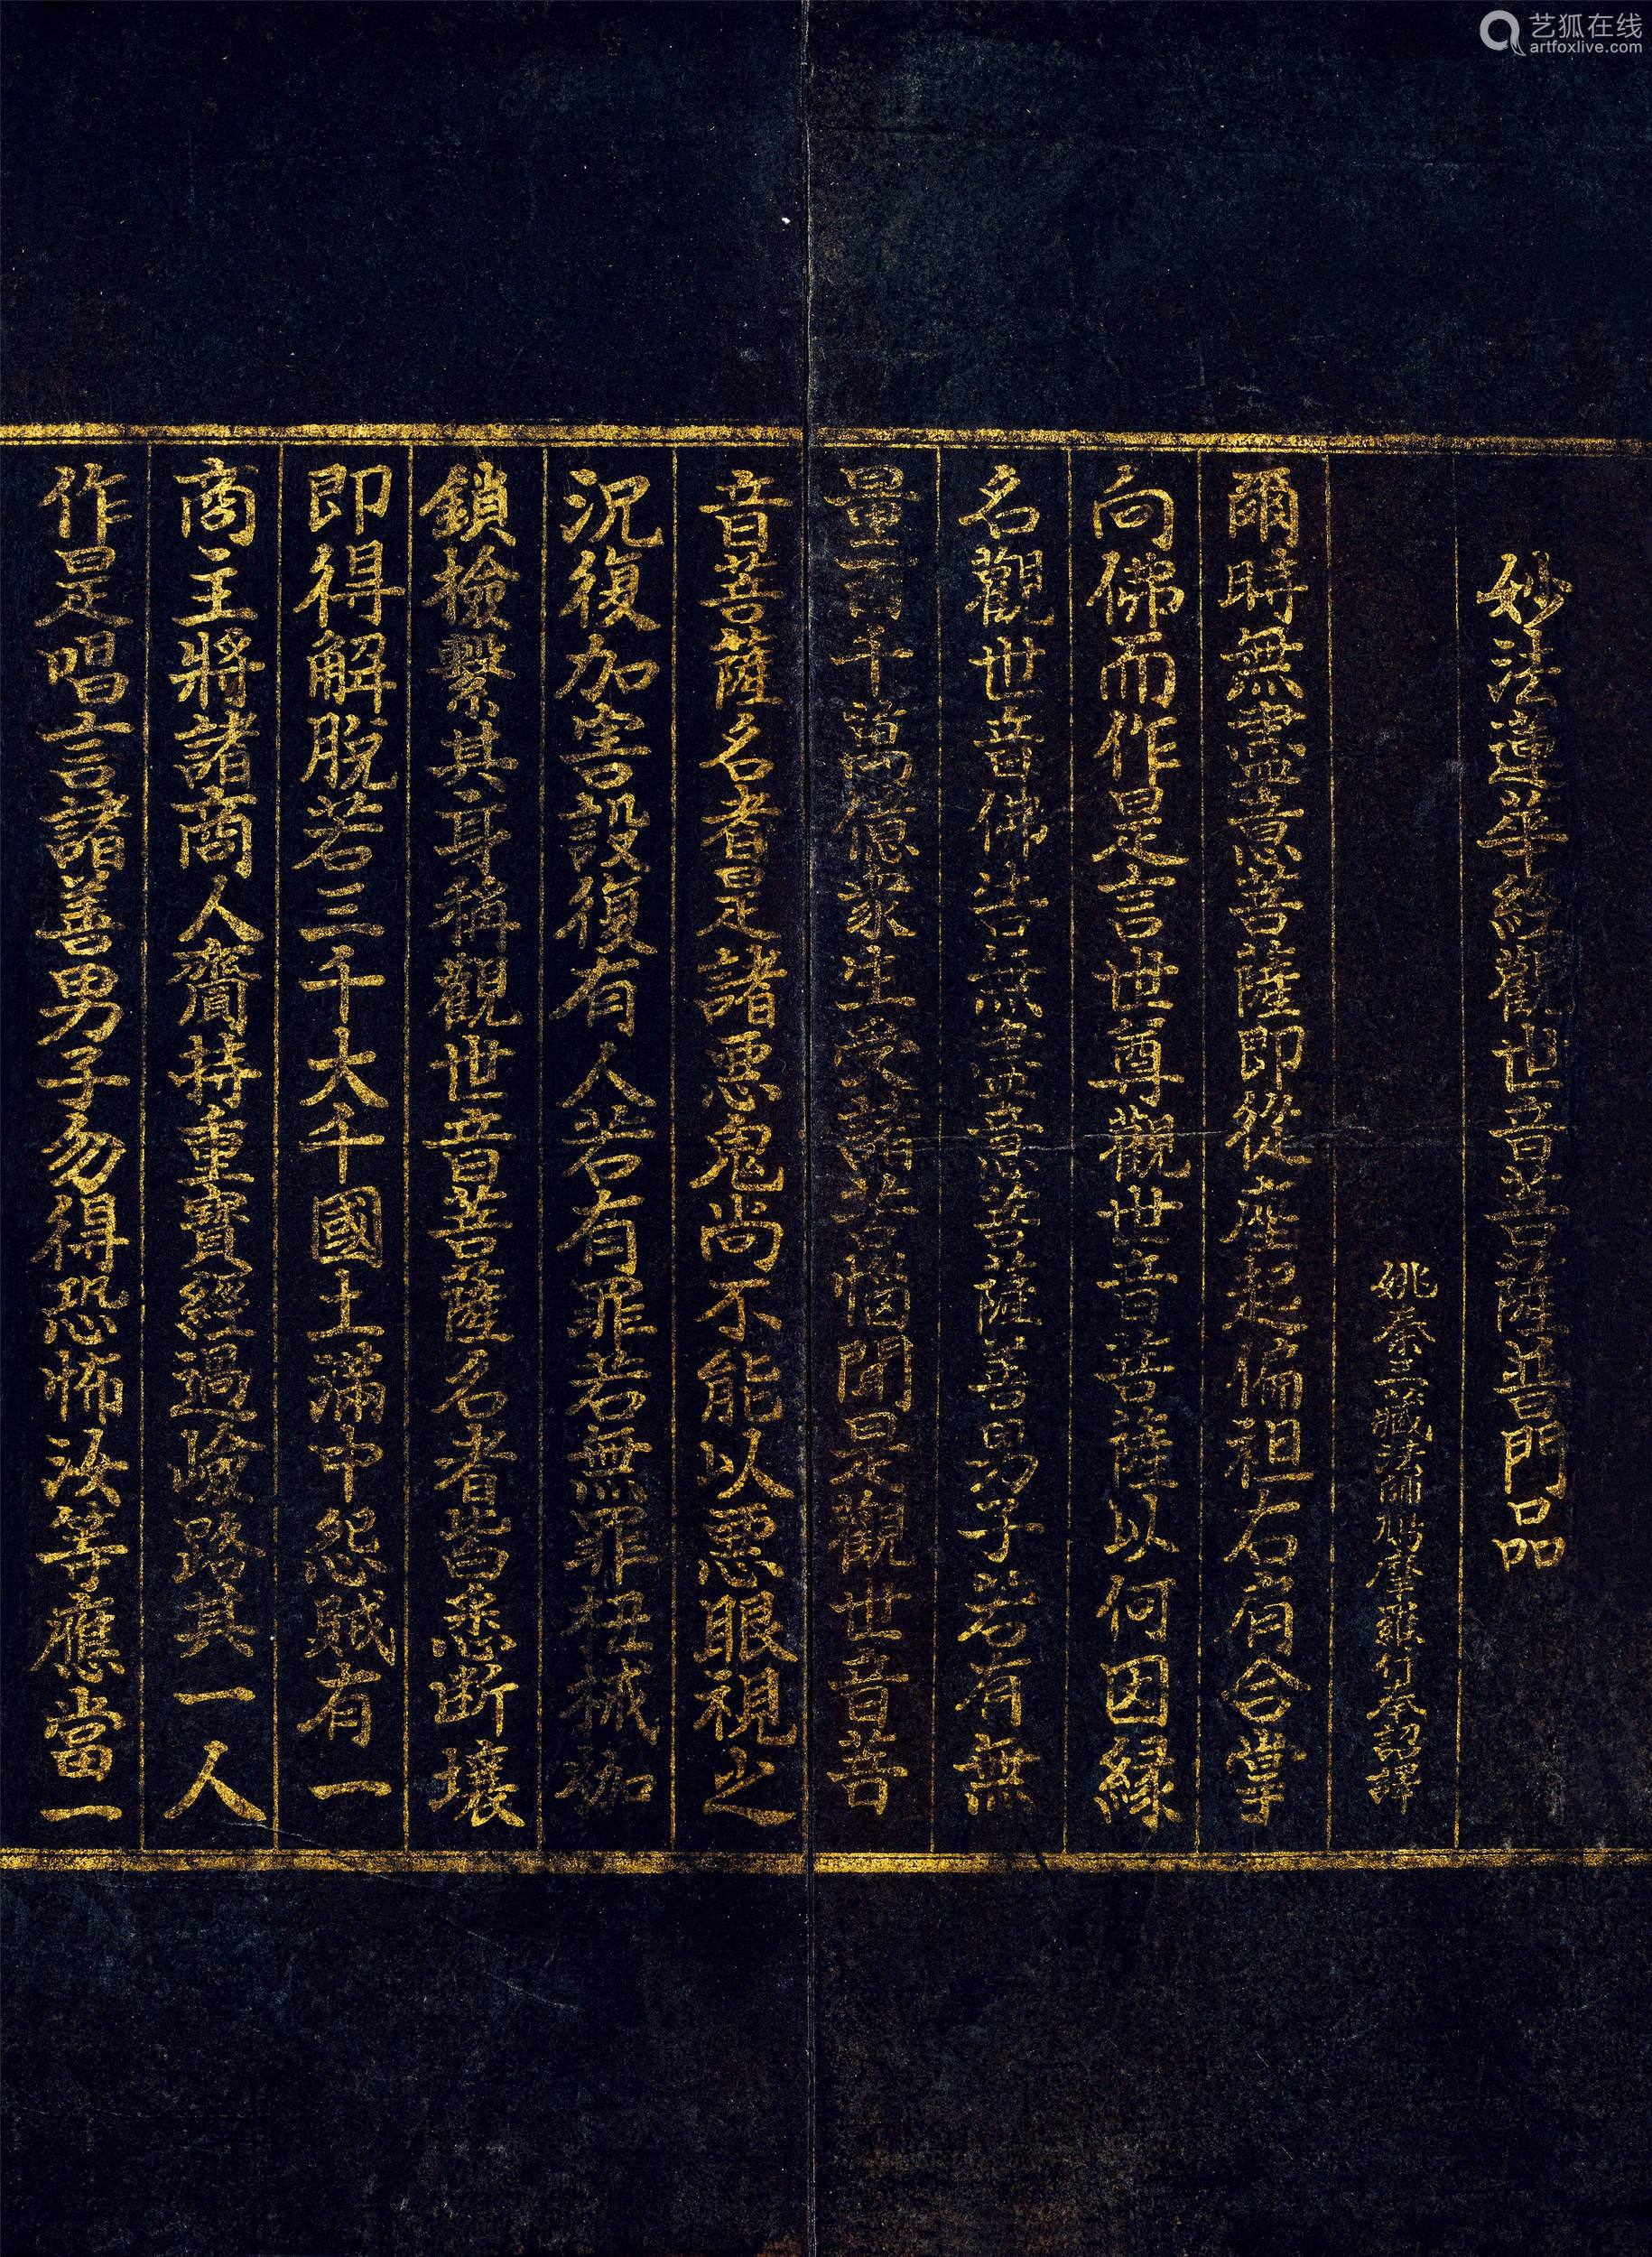 妙法蓮華經觀世音菩薩普門品
姚秦三藏法師鳩摩羅什奉詔譯
爾時無盡意菩薩即從座起偏袒右肩合掌
向佛而作是言世尊觀世音菩薩以何因緣
名觀世音佛告無盡意菩薩善男子若有無
量百千萬億衆生受諸苦惱聞是觀世音菩
音菩薩名者是諸惡鬼尚不能以惡眼視之
況復加害設復有人若有罪若無罪杻械枷
鎖檢繫其身稱觀世音菩薩名者皆悉斷壞
即得解脫若三千大千國土滿中怨賊有一
商主將諸商人齎持重寶經過嶮路其一人
作是唱言諸善男子勿得恐怖汝等應當一
艺狐在线
artfoxlive.com